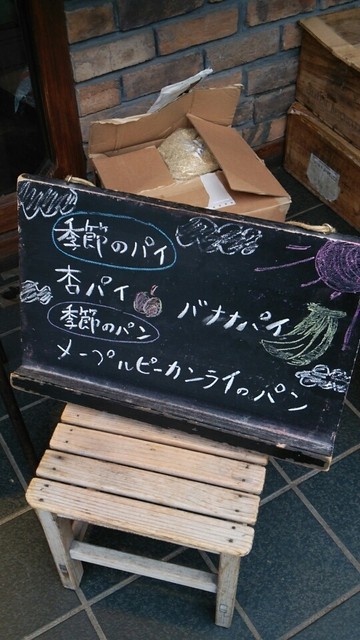 季節のパイ
杏パイ
バナナパイ
季節のパン
メープルピーカンライのパン